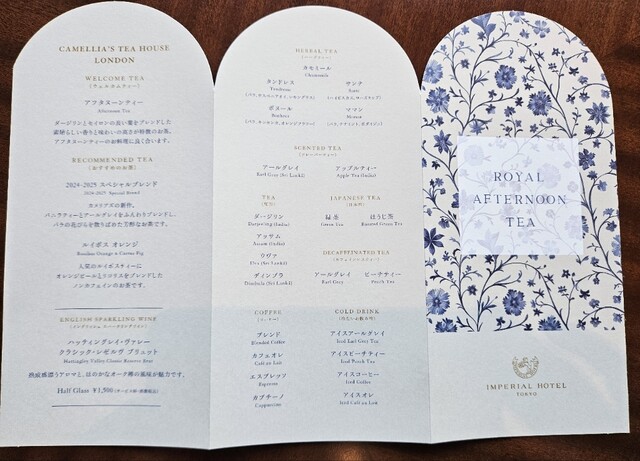 CAMELLIA'S TEA HOUSE
LONDON
WELCOME TEA
(ウェルカムティー)
アフタヌーンティー
Afternoon Tea
ダージリンとセイロンの良い葉をブレンドした
素晴らしい香りと味わいの高さが特徴のお茶。
アフタヌーンティーのお料理に良く合います。
RECOMMENDED TEA
(おすすめのお茶)
2024-2025 スペシャルブレンド
2024-2025 Special Blend
カメリアズの新作。
バニラウーロンとアールグレイをふんわりブレンドし、
バラの花びらを散りばめた芳醇なお茶です。
ルイボス オレンジ
人気のルイボスティーに
オレンジピールとリコリスをブレンドした
ノンカフェインのお茶です。
ENGLISH SPARKLING WINE
(イングリッシュ スパークリングワイン)
ハッティングレイ・ヴァレー
クラシック・レゼルヴ ブリュット
Hattingley Valley Classic Reserve Brut
熟成感漂うアロマと、ほのかなオーク樽の風味が魅力です。
Half Glass ¥1,500
HERBAL TEA
(ハーブティー)
カモミール
Chamomile
タンドレス
Tendresse
サンテ
Sante
ボヌール
Bonheur
ママン
Maman
SCENTED TEA
(フレーバーティー)
アールグレイ
Earl Grey (Sri Lanka)
アップルティー
Apple Tea (India)
TEA
(紅茶)
ダージリン
Darjeeling (India)
アッサム
Assam (India)
ウヴァ
Uva (Sri Lanka)
ディンブラ
Dimbula (Sri Lanka)
JAPANESE TEA
(日本茶)
緑茶
Green Tea
ほうじ茶
Roasted Green Tea
DECAFFEINATED TEA
アールグレイ
Earl Grey
ピーチティー
Peach Tea
COFFEE
(コーヒー)
ブレンド
Blended Coffee
カフェオレ
Café au Lait
エスプレッソ
Espresso
カプチーノ
Cappuccino
COLD DRINK
(冷たいお飲み物)
アイスアールグレイ
Iced Earl Grey Tea
アイスピーチティー
Iced Peach Tea
アイスコーヒー
Iced Coffee
アイスオレ
Iced Café au Lait
ROYAL
AFTERNOON
TEA
IMPERIAL HOTEL
TOKYO